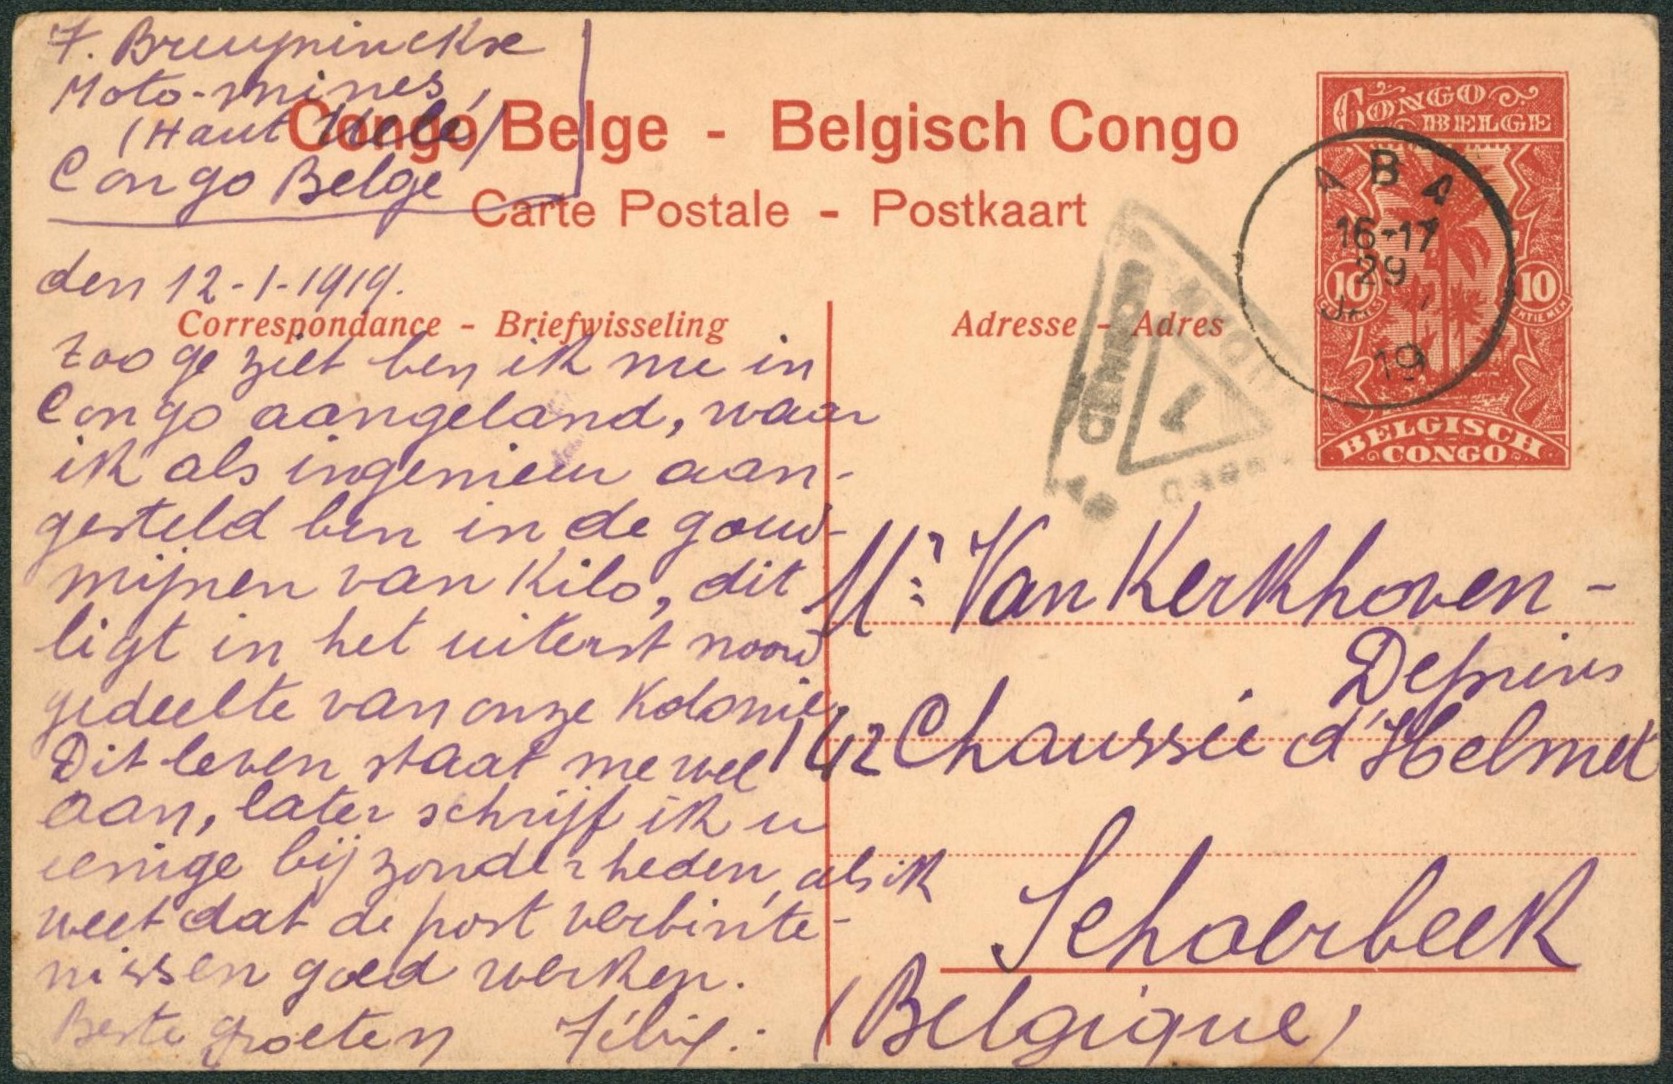 F. Bruyninckx
Moto-mines,
(Haut Uele)
Congo Belge
Congo Belge - Belgisch Congo
Carte Postale - Postkaart
CONGO
BELGE
10
10
BELGISCH
CONGO
ABA
16-17
29
19
CENSURE
1
den 12-1-1919.
Correspondance - Briefwisseling
Adresse - Adres
zoo ge ziet ben ik me in
Congo aangeland, waar
ik als ingenieur aan-
gesteld ben in de gouw-
mijnen van Kilo, dit
ligt in het uiterst noord
gedeelte van onze Kolonie
Dit leven staat me wel
aan, later schrijf ik u
eenige bijzonderheden, als ik
weet dat de post verbinte-
nissen goed werken.
Beste groeten Félix.
Mr. Van Kerkhoven-
Deprins
142 Chaussée d'Helmet
Schaerbeek
(Belgique)